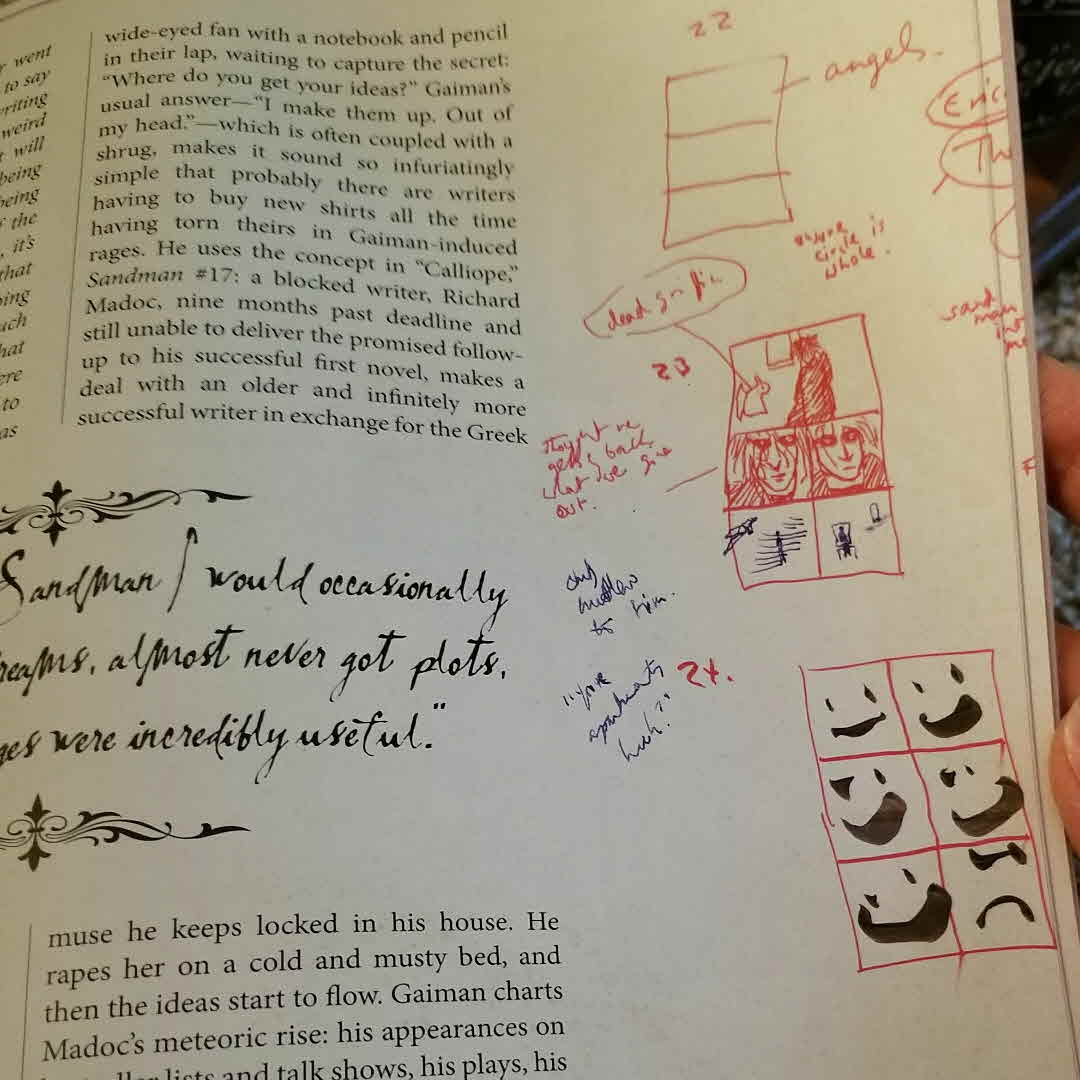 went
to say
writing
weird
will
being
being
the
it's
that
ing
uch
hat
ere
to
as
wide-eyed fan with a notebook and pencil
in their lap, waiting to capture the secret:
“Where do you get your ideas?” Gaiman’s
usual answer—“I make them up. Out of
my head.”—which is often coupled with a
shrug, makes it sound so infuriatingly
simple that probably there are writers
having to buy new shirts all the time
having torn theirs in Gaiman-induced
rages. He uses the concept in “Calliope,”
Sandman #17: a blocked writer, Richard
Madoc, nine months past deadline and
still unable to deliver the promised follow-
up to his successful first novel, makes a
deal with an older and infinitely more
successful writer in exchange for the Greek
Sandman I would occasionally
reams, almost never got plots,
ges were incredibly useful."
muse he keeps locked in his house. He
rapes her on a cold and musty bed, and
then the ideas start to flow. Gaiman charts
Madoc’s meteoric rise: his appearances on
lists and talk shows, his plays, his
22
angels.
circle is
whole.
23
what we give
out.
to him.
24.